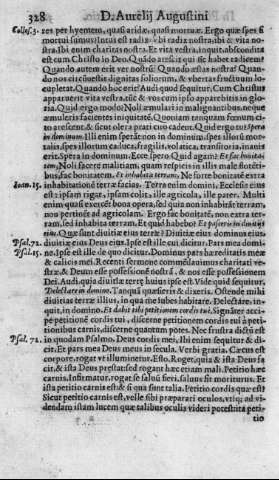 328 D. Aurelij Augustini
Coloss. 3. ret per hyemem, quasi arida, quasi mortua. Ergo quæ spes si
mortui sumus? Intus est radix: vbi radix nostra, ibi & vita no
stra. Ibi enim charitas nostra. Et vita vestra, inquit, abscondita
est cum Christo in Deo. Quãdo arescit qui sic habet radicem?
Quando autem erit ver nostrũ? Quando æstas nostra? Quan
do nos circũuestit dignitas foliorum, & vbertas fructuum lo
cupletat. Quando hoc erit? Audi quod sequitur. Cum Christus
apparuerit vita vestra, tunc & vos cum ipso apparebitis in glo
ria. Quid ergo modò? Noli æmulari in malignantibus, neque
æmuleris facientes iniquitatem. Quoniam tanquam fœnum ci
to arescent, & sicut olera prati cito cadent. Quid ergo tu? Spera
in domino. Illi enim sperãt non in dominum. Spes illorum
mortalis, spes illorum caduca, fragilis, volatica, transitoria, inanis
erit. Spera in dominum. Ecce spero. Quid agam? Et fac bonita-
tem. Noli facere malitiam, quam respicis in illis malè florẽti-
bus, fac bonitatem. Et inhabita terram. Ne forte bonitatẽ extra
Ioan. 15. inhabitationẽ terræ facias. Terra enim domini, Ecclesia eius
est: ipsam rigat, ipsam colit, ille agricola, ille pater. Multi
enim quasi exercẽt bona opera, sed quia non inhabitãt terram,
non pertinẽt ad agricolam. Ergo fac bonitatẽ, non extra ter-
ram, sed inhabita terram. Et quid habebo? Et pasceris in diuitijs
eius. Quæ sunt diuitiæ eius terræ? Diuitiæ eius dominus eius,
Psal. 72. diuitiæ eius Deus eius. Ipse est ille cui dicitur, Pars mea domi-
Psal. 15. ne. Ipse est ille de quo dicitur, Dominus pars hæreditatis meæ
& calicis mei. Recenti sermone commẽdauimus charitati ve-
stræ, & Deum esse possessionẽ nostrã, & nos esse possessionem
Dei. Audi quia diuitiæ terræ huius ipse est. Vide quid sequitur,
Delectare in domino. Tanquã quæsieris & dixeris, Ostende mihi
diuitias terræ illius, in qua me iubes habitare. Delectare, in-
quit, in domino. Et dabit tibi petitionem cordis tui. Signãter acci-
pe petitionẽ cordis tui, discerne petitionem cordis tui à peti-
tionibus carnis, discerne quantum potes. Nec frustra dictũ est
Psal. 72. in quodam Psalmo, Deus cordis mei. Ibi enim sequitur & di-
cit. Et pars mea Deus meus in secula. Verbi gratia. Cæcus est
corpore, rogat vt illuminetur. Esto. Roget, quia & ista Deus fa-
cit, & ista Deus præstat: sed rogant hæc etiam mali. Petitio hæc
carnis. Infirmatur, rogat se saluũ fieri, saluus fit moriturus. Et
ista petitio carnis est: & si qua sunt talia. Petitio cordis quæ est?
Sicut petitio carnis est, velle sibi præparari oculos, vtiq; ad vi-
dendam istam lucem quæ talibus oculis videri potest: ita peti-
tio